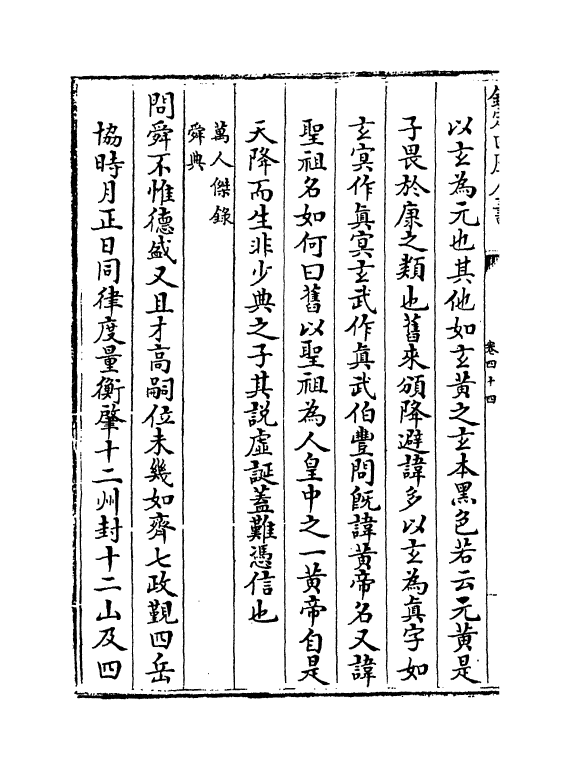 以玄為元也其他如玄黃之玄本黑色若云元黃是
子畏於康之類也舊來頒降避諱多以玄為眞字如
玄寞作眞冥玄武作眞武伯豐問旣諱黃帝名又諱
聖祖名如何曰舊以聖祖為人皇中之一黃帝自是
天降而生非少典之子其説虛誕蓋難憑信也
萬人傑錄
舜典
問舜不惟德盛又且才高嗣位未幾如齊七政覲四岳
協時月正日同律度量衡肇十二州封十二山及四
卷四十四